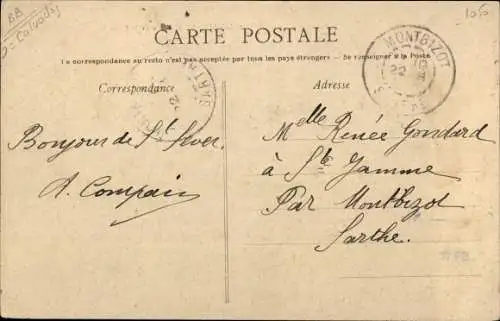 BB
Calvados
105
CARTE POSTALE
La correspondance au recto n'est pas acceptée par tous les pays étrangers - Se renseigner à la Poste
Correspondance
Adresse
MONTBIZOT
22
SARTHE
Bonjour de St Sever
A. Compain
Melle Renée Gondard
à Ste Jamme
Par Montbizot
Sarthe.